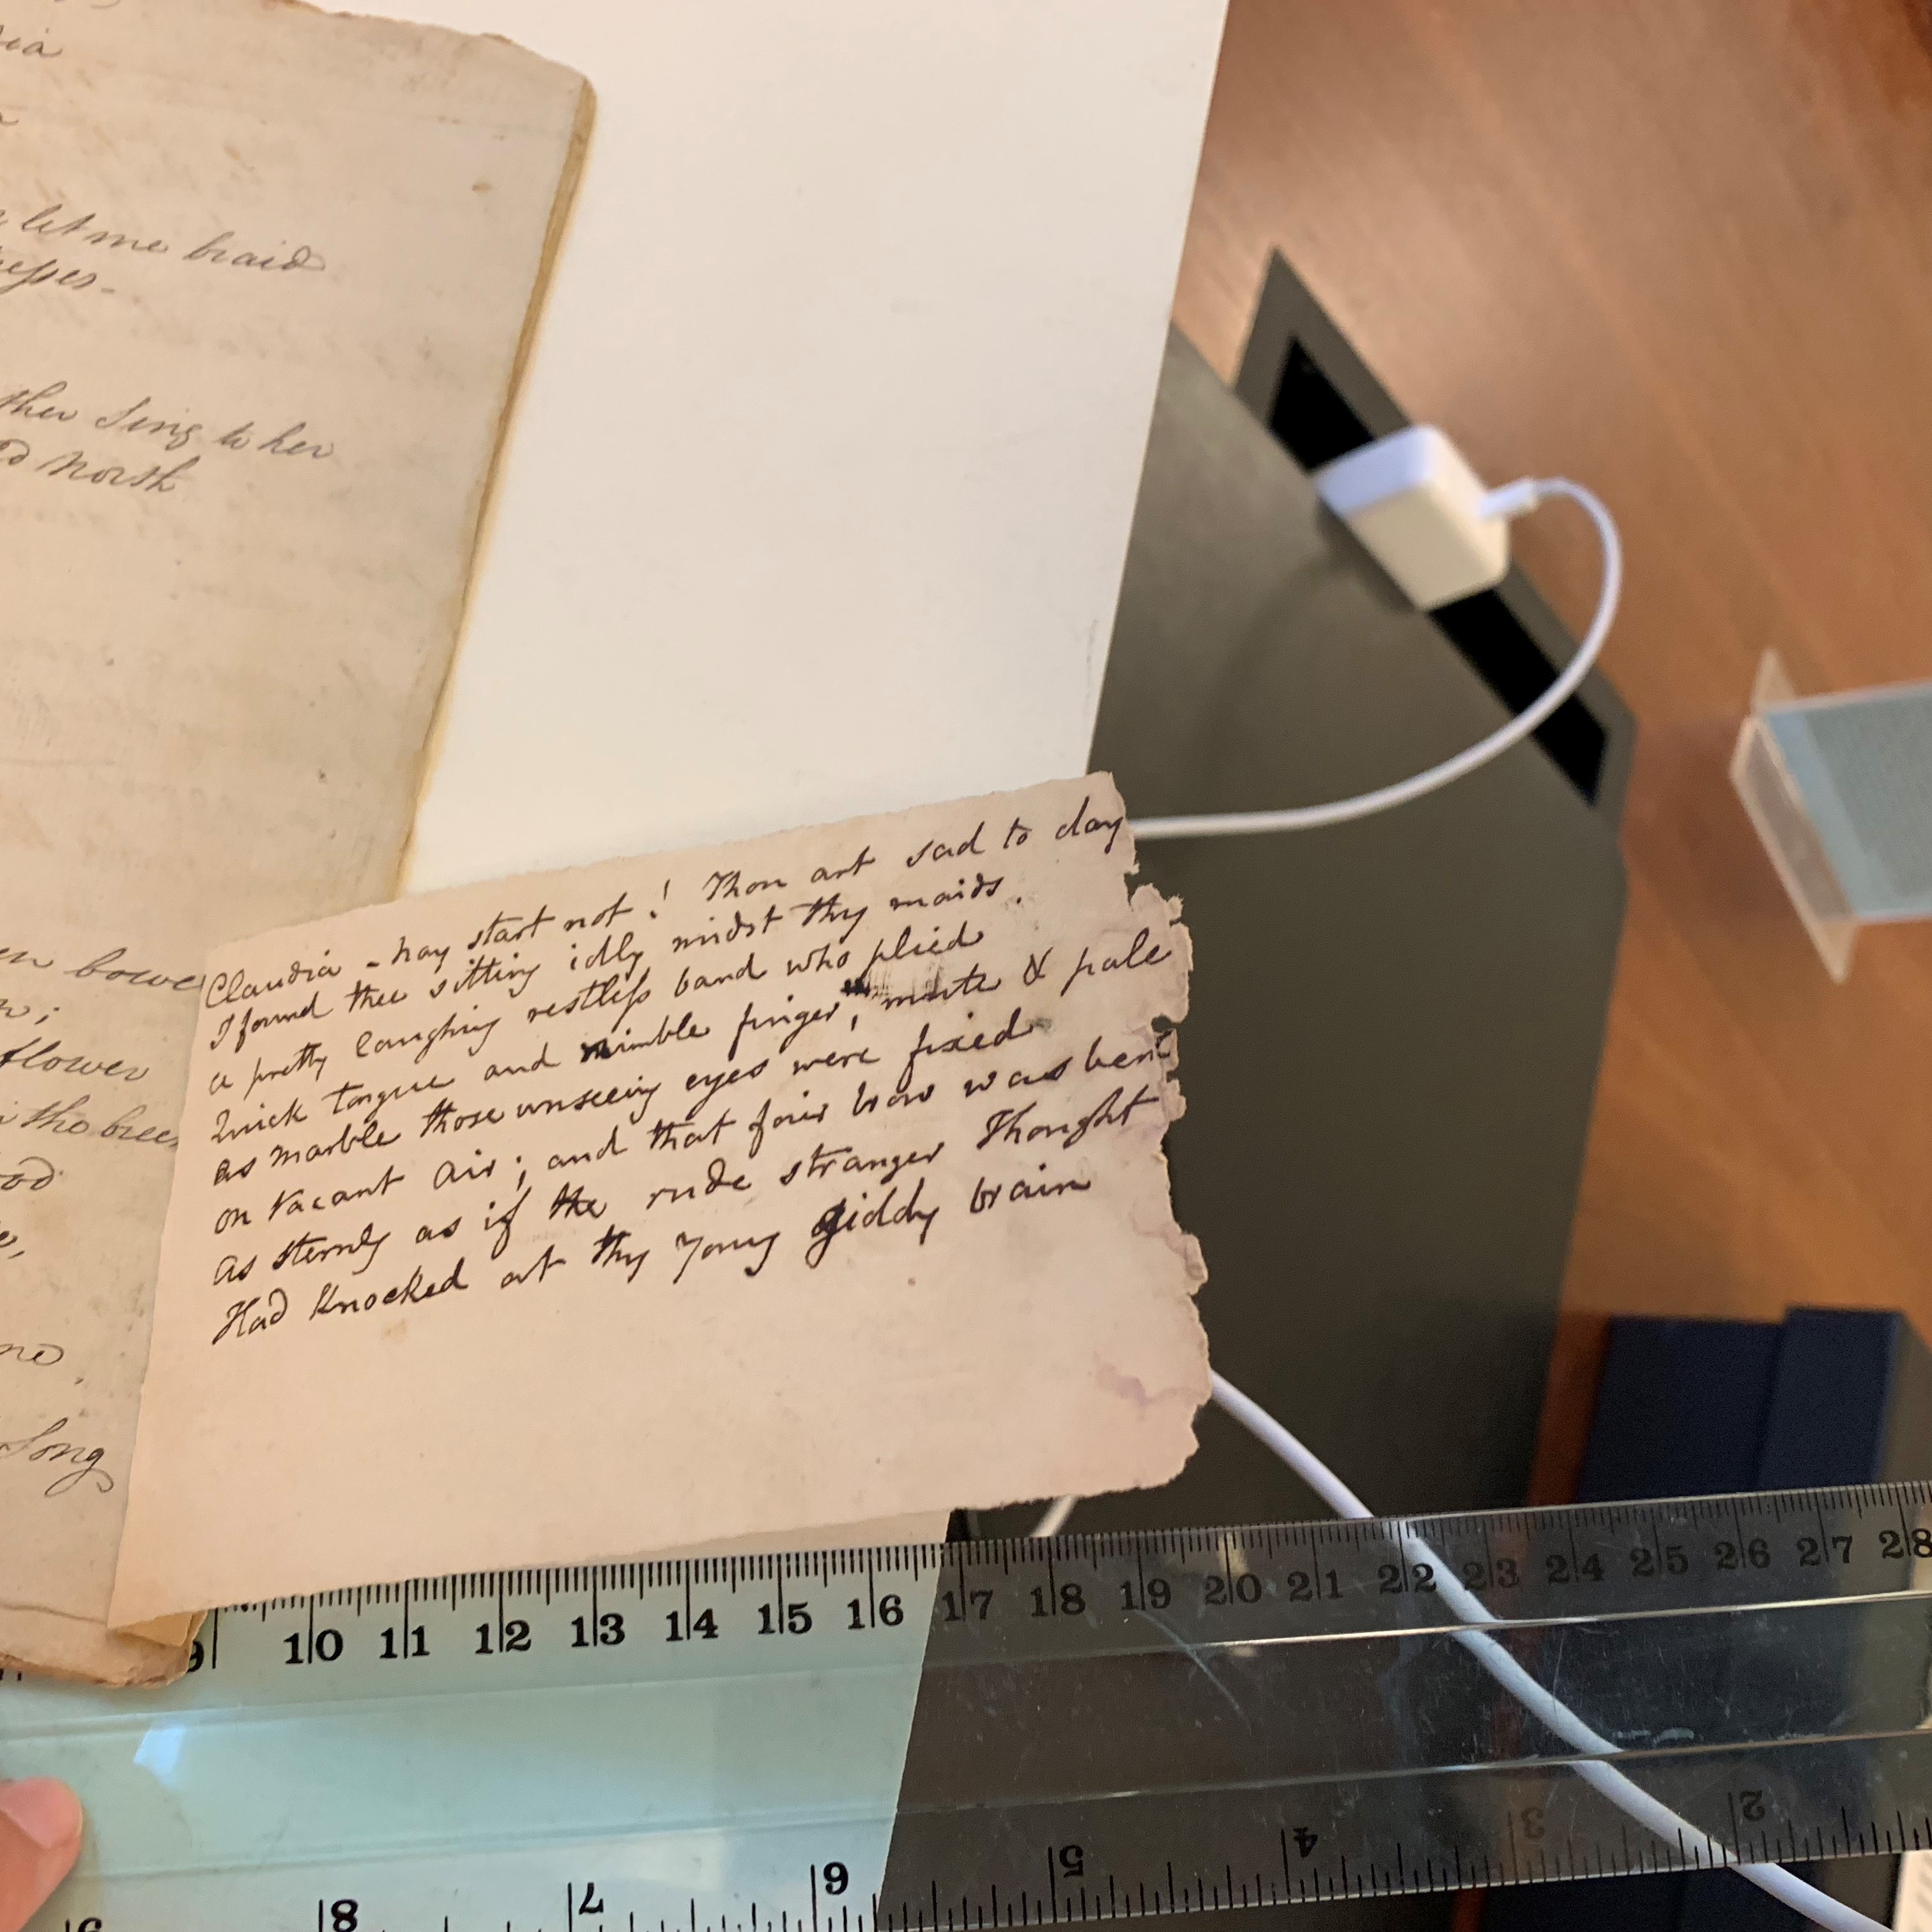 let me braid
ther Sing to her
North
bowe
flower
Song
Claudia - nay start not! Thou art sad to day
I found thee sitting idly midst thy maids.
a pretty laughing restless band who plied
Quick tongue and nimble finger, mute & pale
as marble those unseeing eyes were fixed
on vacant air; and that fair brow was bent
as sternly as if the rude stranger Thought
Had knocked at thy young giddy brain
9 10 11 12 13 14 15 16 17 18 19 20 21 22 23 24 25 26 27 28
8 7 6 5 4 3 2